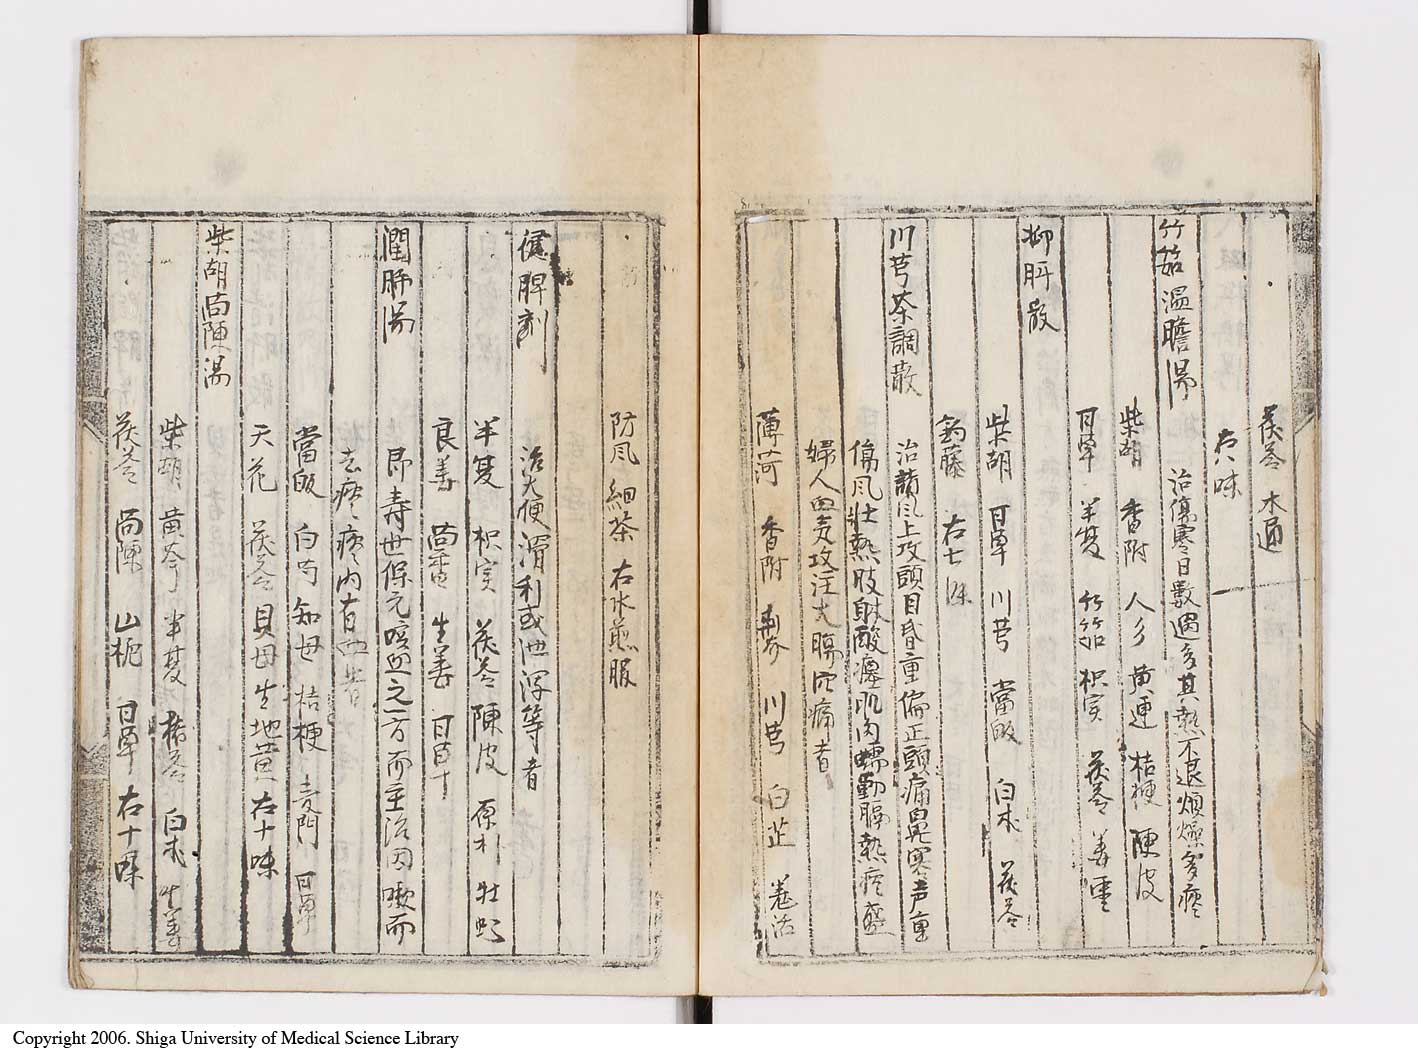 茯苓 木通
右八味
竹筎温膽湯 治傷寒日數過多其熱不退煩燥多痰
柴胡 香附 人參 黄連 桔梗 陳皮
甘草 半夏 竹筎 枳実 茯苓 姜 棗
抑肝散
柴胡 甘草 川芎 當皈 白朮 茯苓
釣藤 右七味
川芎茶調散 治諸風上攻頭目昏重偏正頭痛鼻塞声重
傷風壮熱肢躰酸 肌肉蠕動膈熱痰盛
婦人血風攻注太陽穴痛者
薄荷 香附 荆芥 川芎 白芷 羗活
防風 細茶 右水煎服
健脾剤 治大便滑利或泄瀉等者
半夏 枳実 茯苓 陳皮 厚朴 牡蛎
良姜 茴香 生姜 甘草
潤肺湯 即寿世保元咳血之一方而主治因嗽而
去痰痰内有血者
當皈 白芍 知母 桔梗 麦門 甘草
天花 茯苓 貝母 生地黄 右十味
柴胡茵陳湯
柴胡 黄芩 半夏 猪苓 白朮 生姜
茯苓 茵陳 山梔 甘草 右十味
Copyright 2006. Shiga University of Medical Science Library